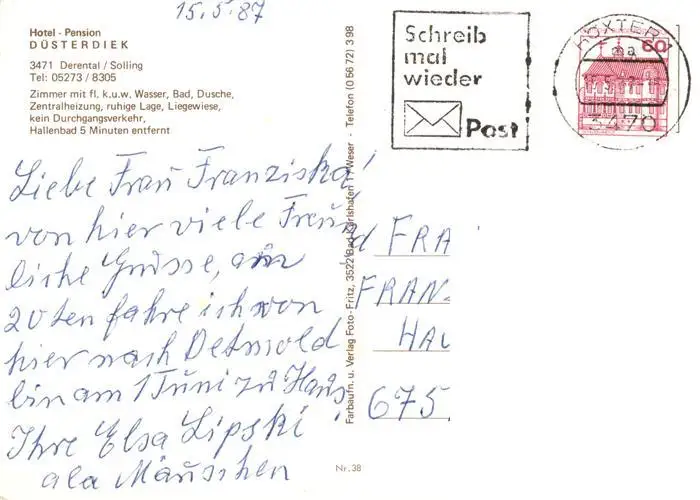 15.5.87
Hotel - Pension
DÜSTERDIEK
3471 Derental / Solling
Tel: 05273 / 8305
Zimmer mit fl. k.u.w. Wasser, Bad, Dusche,
Zentralheizung, ruhige Lage, Liegewiese,
kein Durchgangsverkehr,
Hallenbad 5 Minuten entfernt
Liebe Frau Franziska!
von hier viele Freund
liche Grüsse, am
20ten fahre ich von
hier nach Detmold
bin am 1 Juni zu Haus.
Ihre Elsa Lipski
ala Mäuschen
Farbaufn. u. Verlag Foto-Fritz, 3522 Bad Karlshafen 1 / Weser - Telefon (0 56 72) 3 98
Nr. 38
Schreib
mal
wieder
Post
HÖXTER 1
ma
3470
60
FRA
FRAN
HAU
675